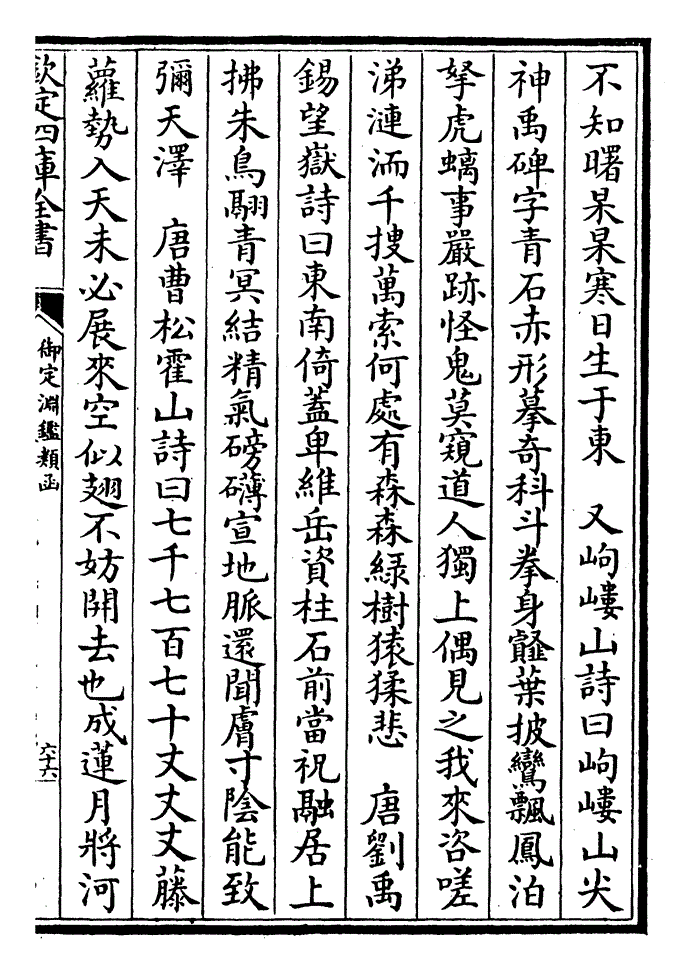 不知曙杲杲寒日生于東　又岣嶁山詩曰岣嶁山尖
神禹碑字青石赤形摹奇科斗拳身薤葉披鸞飄鳳泊
拏虎螭事嚴跡怪鬼莫窺道人獨上偶見之我來咨嗟
涕漣洏千搜萬索何處有森森綠樹猿猱悲　唐劉禹
錫望嶽詩曰東南倚蓋卑維岳資柱石前當祝融居上
拂朱鳥翮青冥結精氣磅礴宣地脈還聞膚寸陰能致
彌天澤　唐曹松霍山詩曰七千七百七十丈丈丈藤
蘿勢入天未必展來空似翅不妨開去也成蓮月將河
欽定四庫全書
御定淵鑑類函
六十六